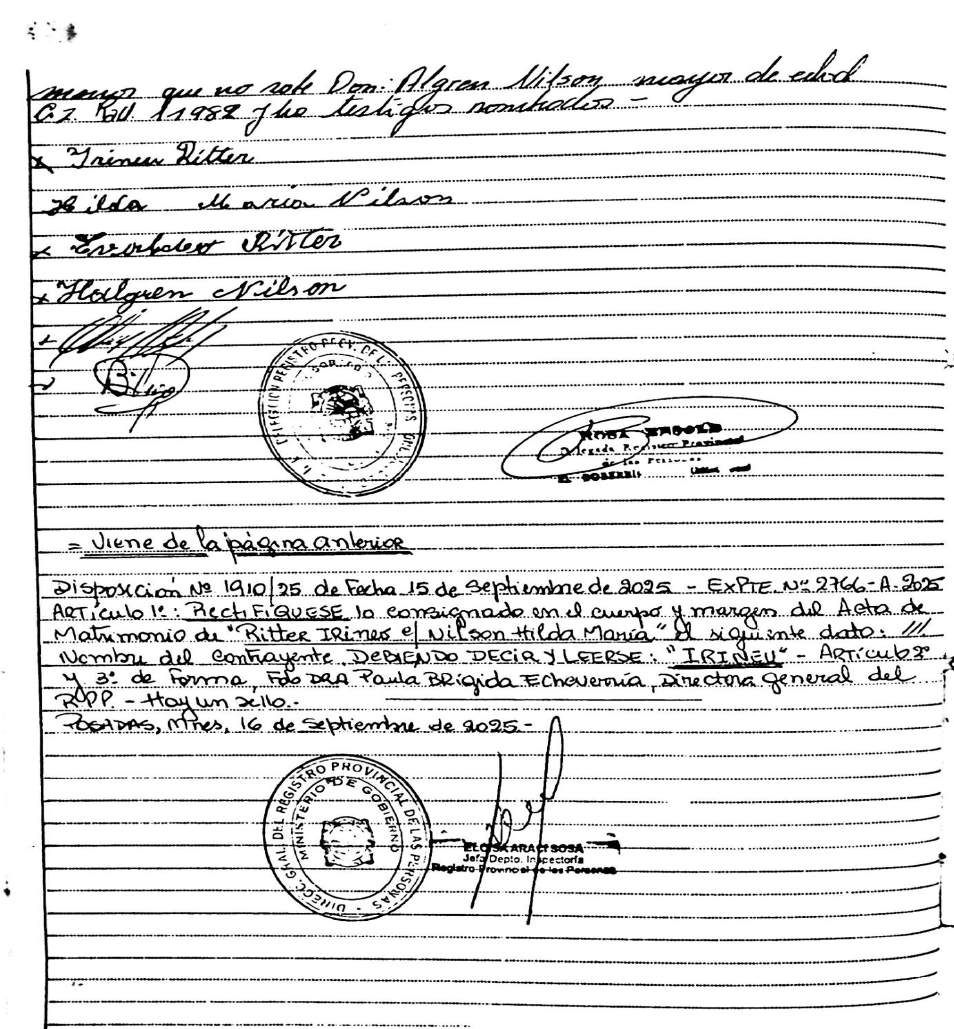 menor que no sabe Don: Algren Nilson mayor de edad
C.I. 1982 y los testigos nombrados -
x Irineu Ritter
Hilda Maria Nilson
x Ritter
x Halgren Nilson
DELEGACION REGISTRO PROV. DE LAS PERSONAS
EL SOBERBIO
ROSA
Delegada Registro Provincial
de las Personas
EL SOBERBIO
= Viene de la página anterior
Disposición Nº 1910/25 de Fecha 15 de Septiembre de 2025 - EXPTE. Nº 2766-A-2025
ARTículo 1º: RECTIFIQUESE lo consignado en el cuerpo y margen del Acta de
Matrimonio de "Ritter IRineo c/ Nilson Hilda María" el siguiente dato: ///
Nombre del contrayente, DEBIENDO DECIR Y LEERSE: "IRINEU" - ARTículo 2º
y 3º de Forma, Fdo DRA Paula BRígida Echeverría, Directora General del
RPP. - Hay un sello.-
POSADAS, Mnes, 16 de Septiembre de 2025.-
DIRECC. GRAL. DEL REGISTRO PROVINCIAL DE LAS PERSONAS
MINISTERIO DE GOBIERNO
ELOISA ARACI SOSA
Jefa Depto. Inspectoría
Registro Provincial de las Personas